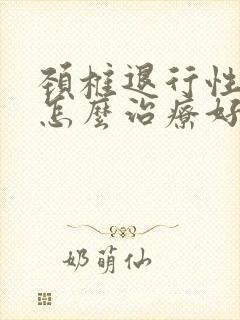 頚椎退行性
怎麼治療好
奶萌仙